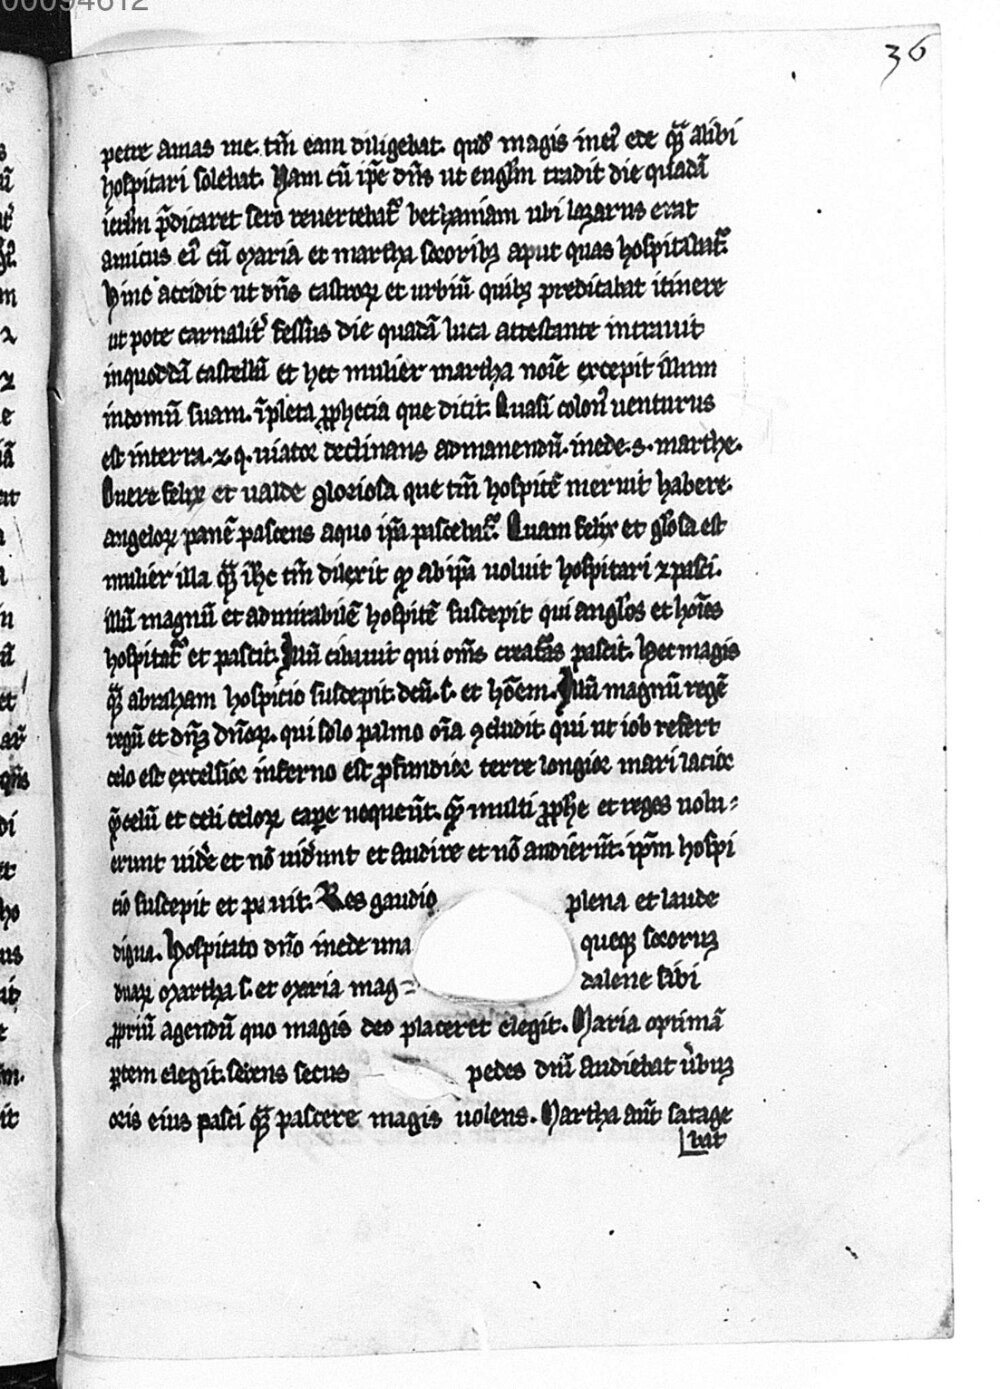 00094612
36
petre amas me. tm̄ eam diligebat. qd' magis in ei' ede qᷓ alibi
hospitari solebat. Nam cū ip̄e dn̄s ut eugl'm tradit die quadā
ierl'm p̄dicaret sero reuertebat' bethaniam ubi lazarus erat
amicus ei' cū maria et martha sororibꝫ aput quas hospitabat'.
Hinc accidit ut dn̄s castroꝝ et urbiū quibꝫ predicabat itinere
ut pote carnalit' fessus die quadā luca attestante intrauit
in quoddā castellū et hec mulier martha noīe excepit illum
in domū suam. īpleta ꝓphecia que dicit. Quasi colon' uenturus
est in terra. ⁊ q. uiator declinans ad manendū. in ede. s. marthe.
O uere felix et ualde gloriosa que tm̄ hospitē meruit habere.
angeloꝝ panē pascens a quo ip̄a pascebat'. Quam felix et gl'osa est
mulier illa qᷓ ih̄c tm̄ dilexit ꝙ ab ip̄a uoluit hospitari ⁊ pasci.
illū magnū et admirabilē hospitē suscepit qui angl'os et hoīes
hospitat' et pascit. Illū cibauit qui om̄s creat'as pascit. Hec magis
qᷓ abraham hospicio suscepit deū. s. et hōem. Illū magnū regē
regū et dn̄m dn̄oꝝ. qui solo palmo oīa ꝯcludit qui ut iob refert
celo est excelsior inferno est ꝓfundior terre longior mari lacior
quē celū et celi celoꝝ cape nequeūt. quē multi ꝓphe et reges uolu-
erunt uid'e et nō uid'unt et audire et nō audierūt. ip̄m hospi
cio suscepit et pauit. Res gaudio plena et laude
digna. Hospitato dn̄o in ede una queqꝫ sororum
duaꝝ martha s. et maria mag- dalene sibi
ꝓpriū agendū quo magis deo placeret elegit. Maria optimā
ꝑtem elegit. sedens secus pedes dn̄i audiebat u'bum
oris eius pasci qᷓ pascere magis uolens. Martha aūt satage
bat